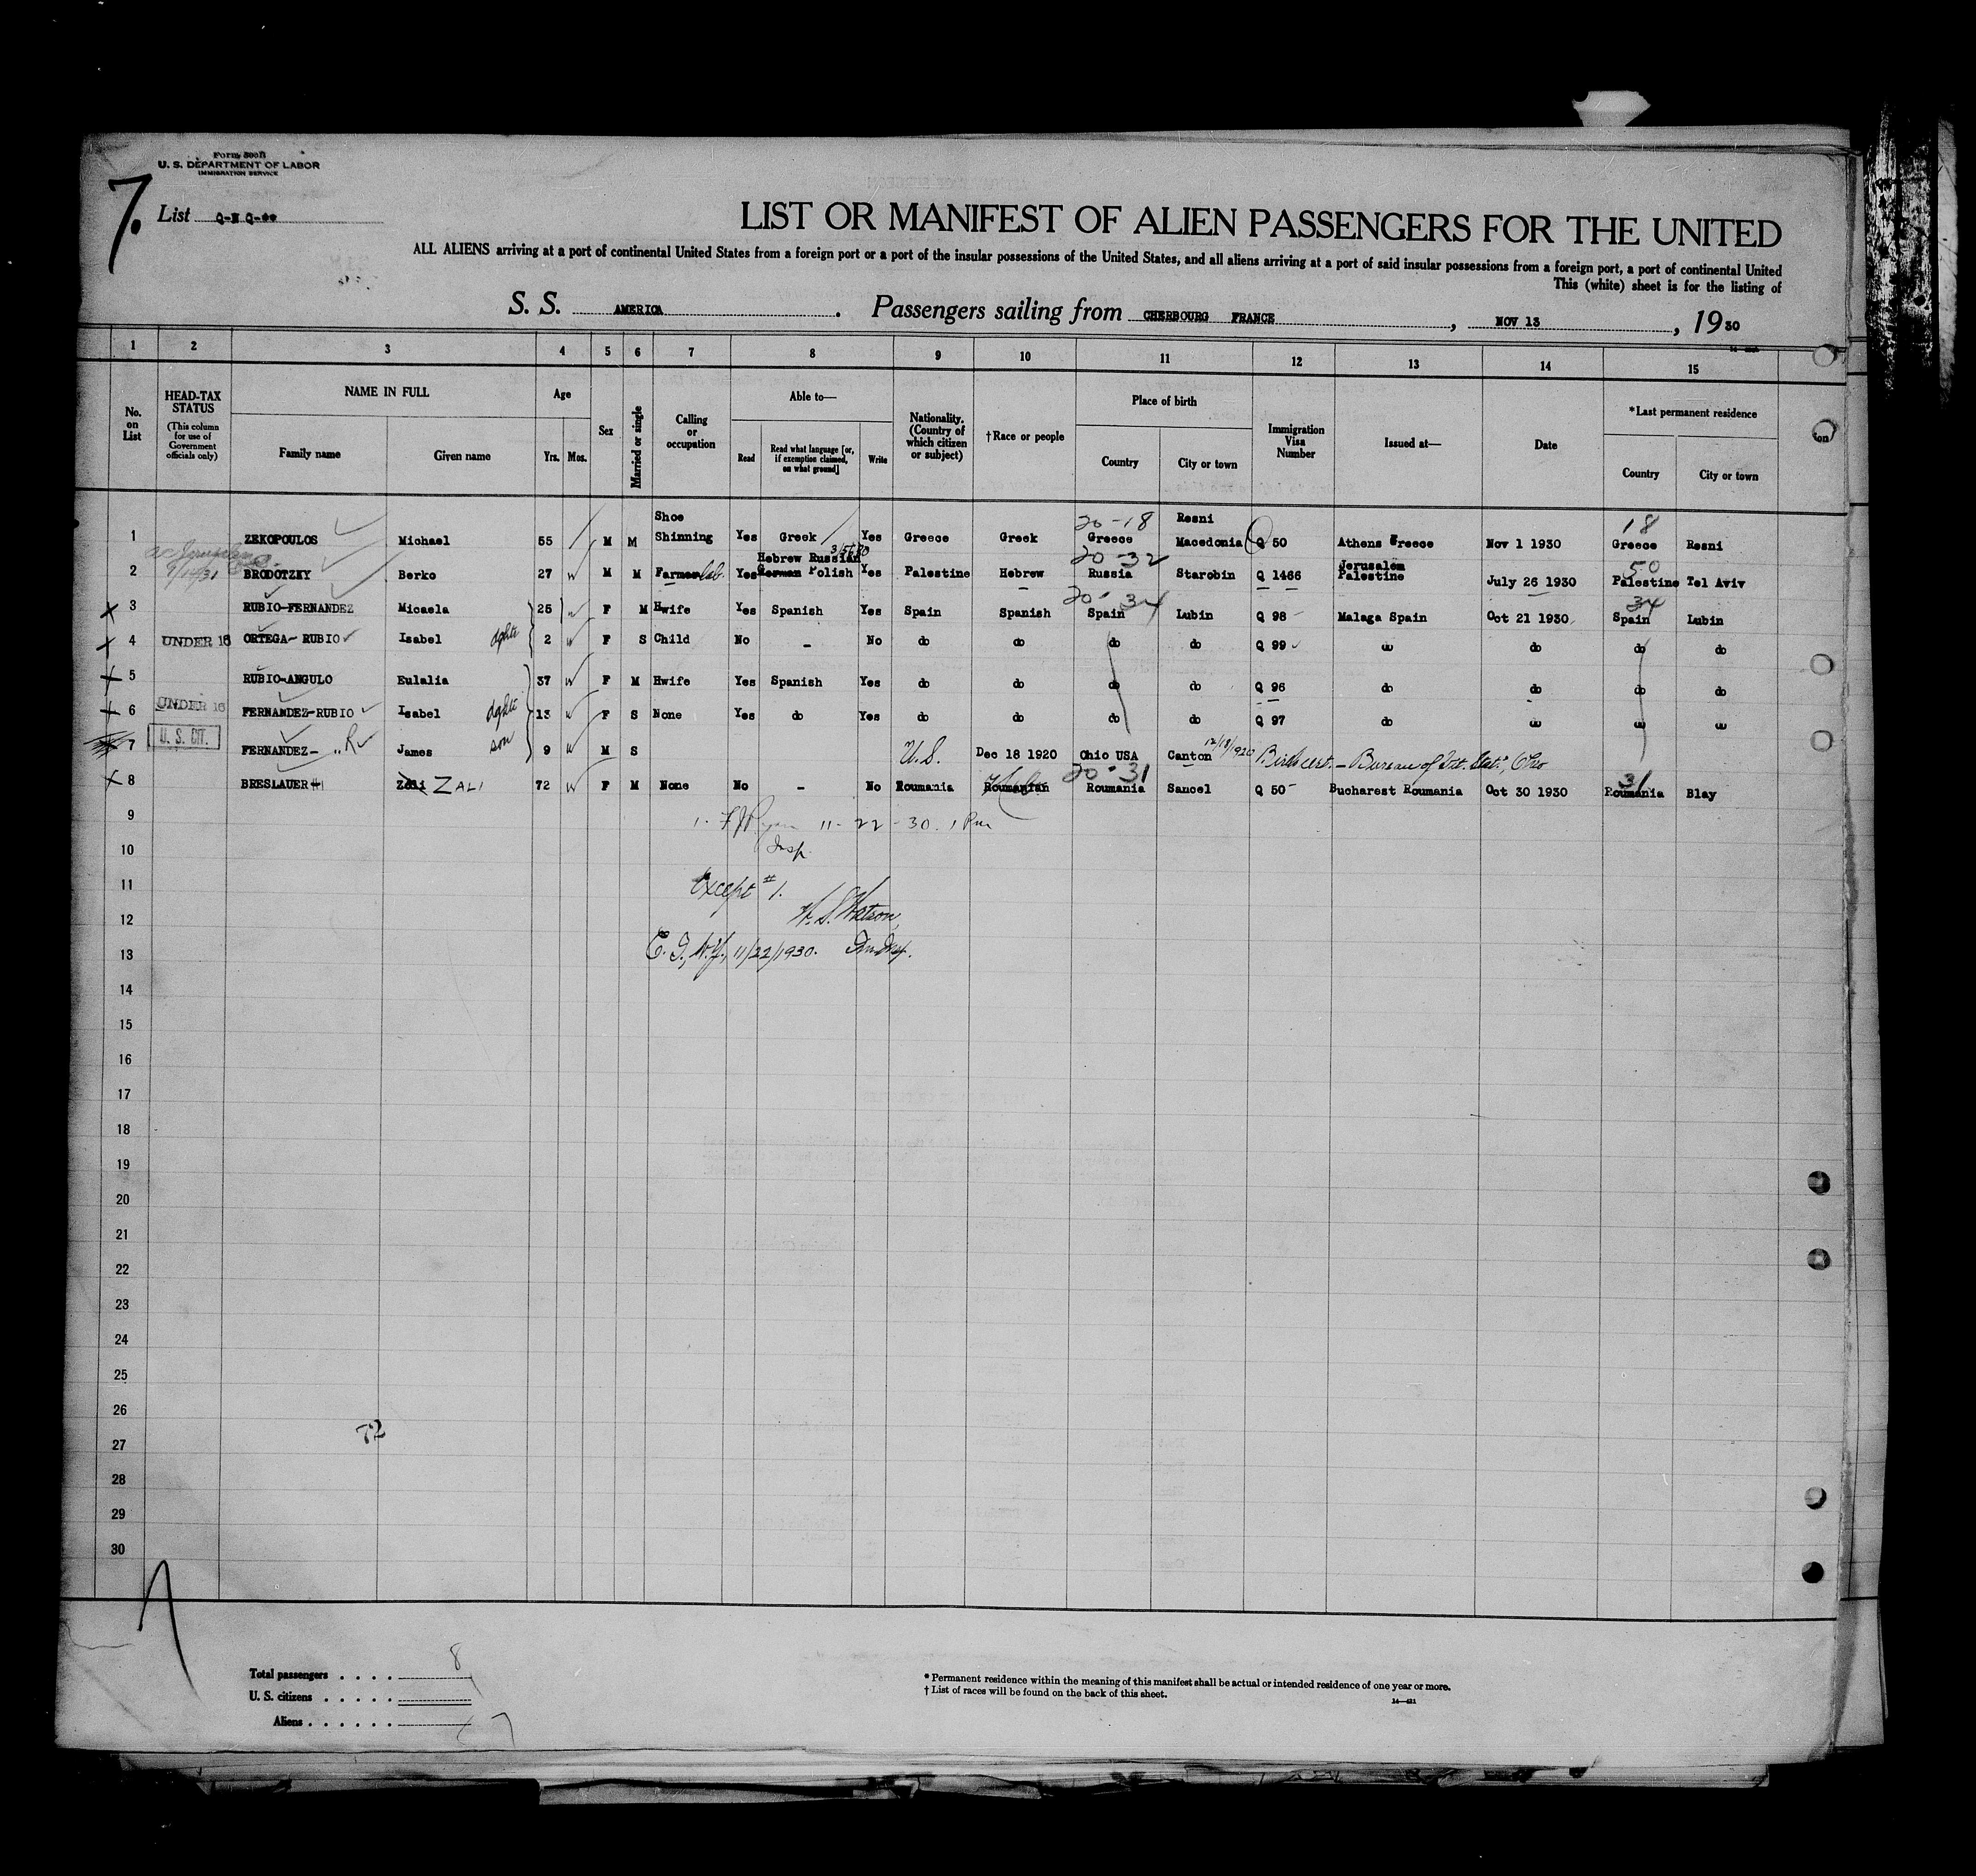 Form 500B
U. S. DEPARTMENT OF LABOR
IMMIGRATION SERVICE
7.
List Q-N Q-**
LIST OR MANIFEST OF ALIEN PASSENGERS FOR THE UNITED
ALL ALIENS arriving at a port of continental United States from a foreign port or a port of the insular possessions of the United States, and all aliens arriving at a port of said insular possessions from a foreign port, a port of continental United
This (white) sheet is for the listing of
S. S. AMERICA . Passengers sailing from CHERBOURG FRANCE , NOV 13 , 1930
1 2 3 4 5 6 7 8 9 10 11 12 13 14 15
No. on List
HEAD-TAX STATUS
(This column for use of Government officials only)
NAME IN FULL
Family name
Given name
Age
Yrs. Mos.
Sex
Married or single
Calling or occupation
Able to—
Read
Read what language [or, if exemption claimed, on what ground]
Write
Nationality. (Country of which citizen or subject)
†Race or people
Place of birth
Country
City or town
Immigration Visa Number
Issued at—
Date
*Last permanent residence
Country
City or town
1 ZEKOPOULOS Michael 55 M M Shoe Shinning Yes Greek Yes Greece Greek 20-18 Greece Resni Macedonia Q 50 Athens Greece Nov 1 1930 18 Greece Resni
2 9/14/31 BRODOTZKY Berko 27 W M M Farmer lab. Yes Hebrew Russian German Polish Yes Palestine Hebrew 20-32 Russia Starobin Q 1466 Jerusalem Palestine July 26 1930 50 Palestine Tel Aviv
X 3 RUBIO-FERNANDEZ Micaela 25 W F M Hwife Yes Spanish Yes Spain Spanish 20-34 Spain Lubin Q 98 Malaga Spain Oct 21 1930 34 Spain Lubin
X 4 UNDER 16 ORTEGA-RUBIO Isabel dghtr 2 W F S Child No - No do do do do Q 99 do do do do
X 5 RUBIO-ANGULO Eulalia 37 W F M Hwife Yes Spanish Yes do do do do Q 96 do do do do
X 6 UNDER 16 FERNANDEZ-RUBIO Isabel dghtr 13 W F S None Yes do Yes do do do do Q 97 do do do do
7 U. S. CIT. FERNANDEZ- "R James son 9 W M S U.S. Dec 18 1920 Ohio USA Canton 12/18/1920 Birth cert. - Bureau of Vit. Stat., Ohio
X 8 BRESLAUER Zoli ZALI 72 W F M None No - No Roumania Roumanian 20-31 Roumania Sancel Q 50 Bucharest Roumania Oct 30 1930 31 Roumania Blay
9 1. 11-22-30. 1 Pm
10 Insp.
11 Except #1.
12 W. S. Watson,
13 E. I., N.Y., 11/22/1930. Im Insp.
14
15
16
17
18
19
20
21
22
23
24
25
26
72
27
28
29
30
Total passengers . . . . 8
U. S. citizens . . . . .
Aliens . . . . . . 7
* Permanent residence within the meaning of this manifest shall be actual or intended residence of one year or more.
† List of races will be found on the back of this sheet.
14—421